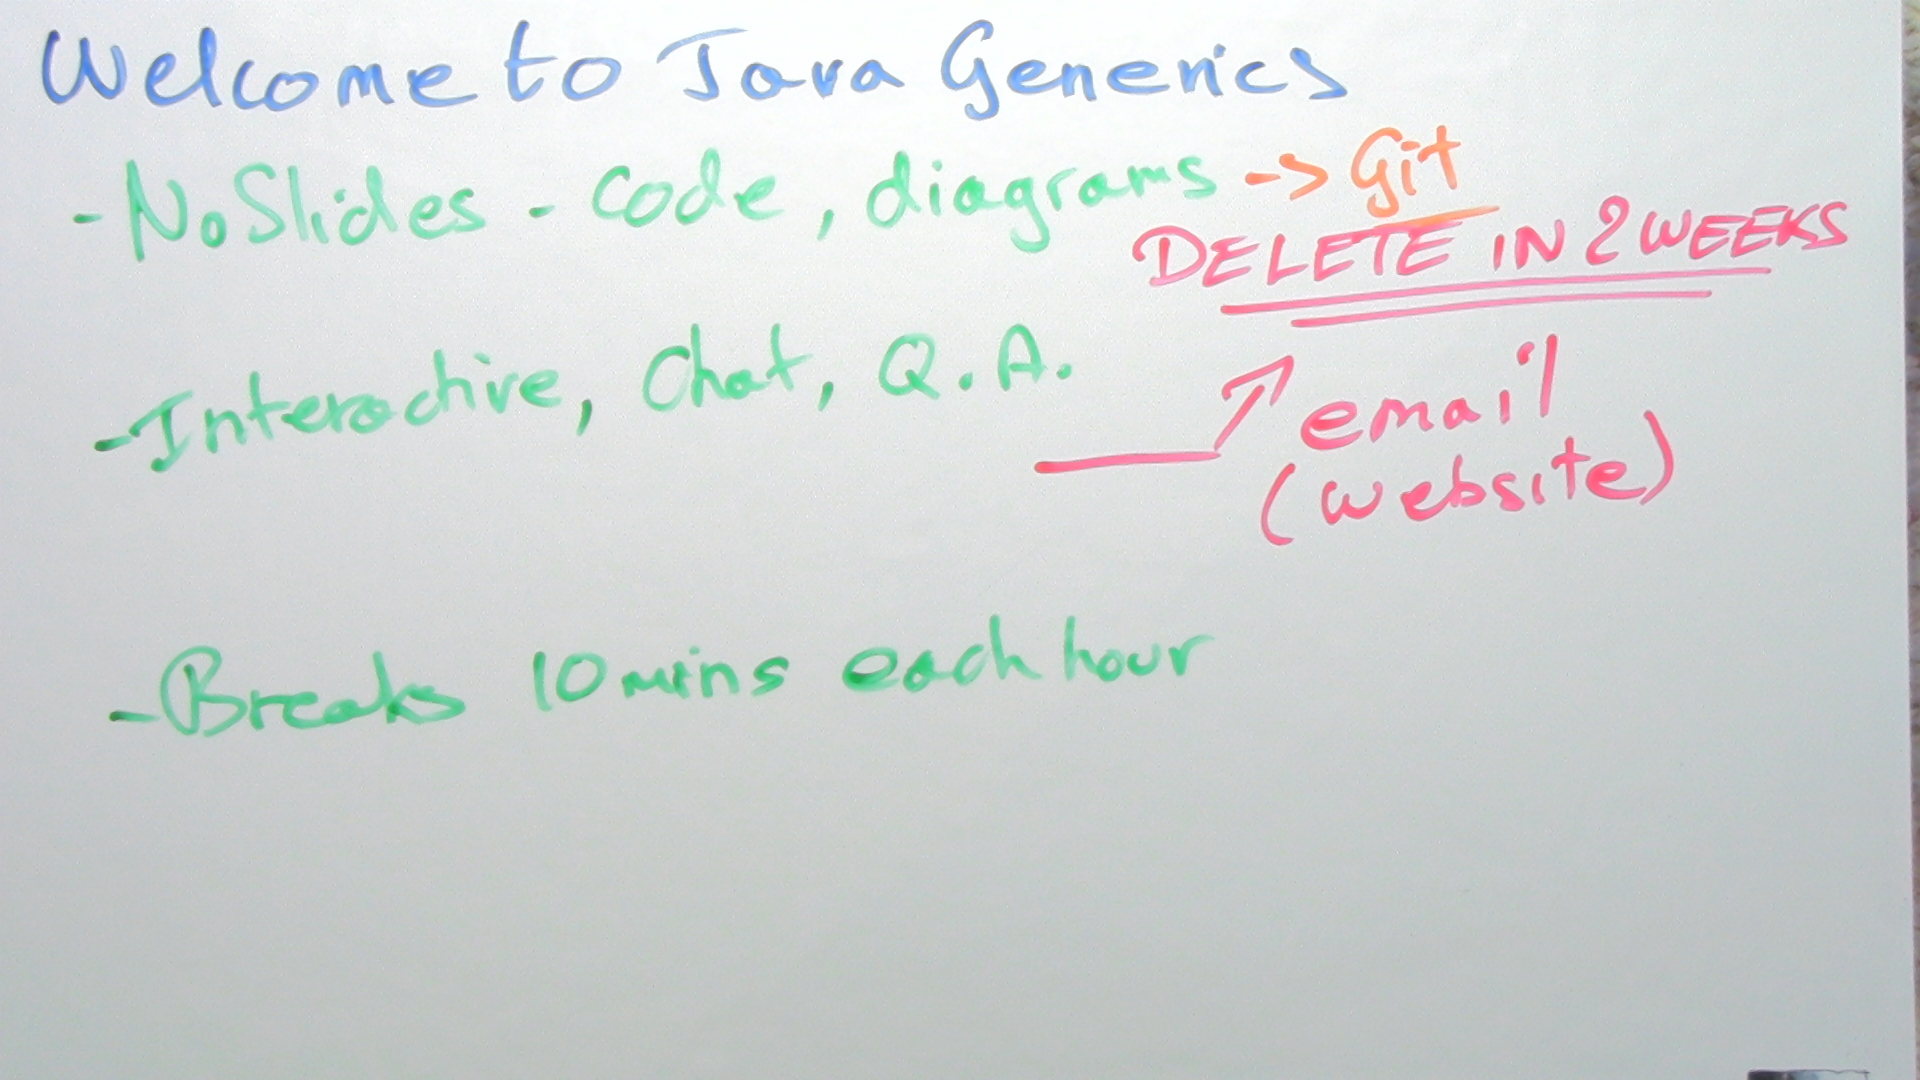 Welcome to Java Generics
- No Slides - code, diagrams -> Git
DELETE IN 2 WEEKS
- Interactive, Chat, Q.A.
email
(website)
- Breaks 10 mins each hour